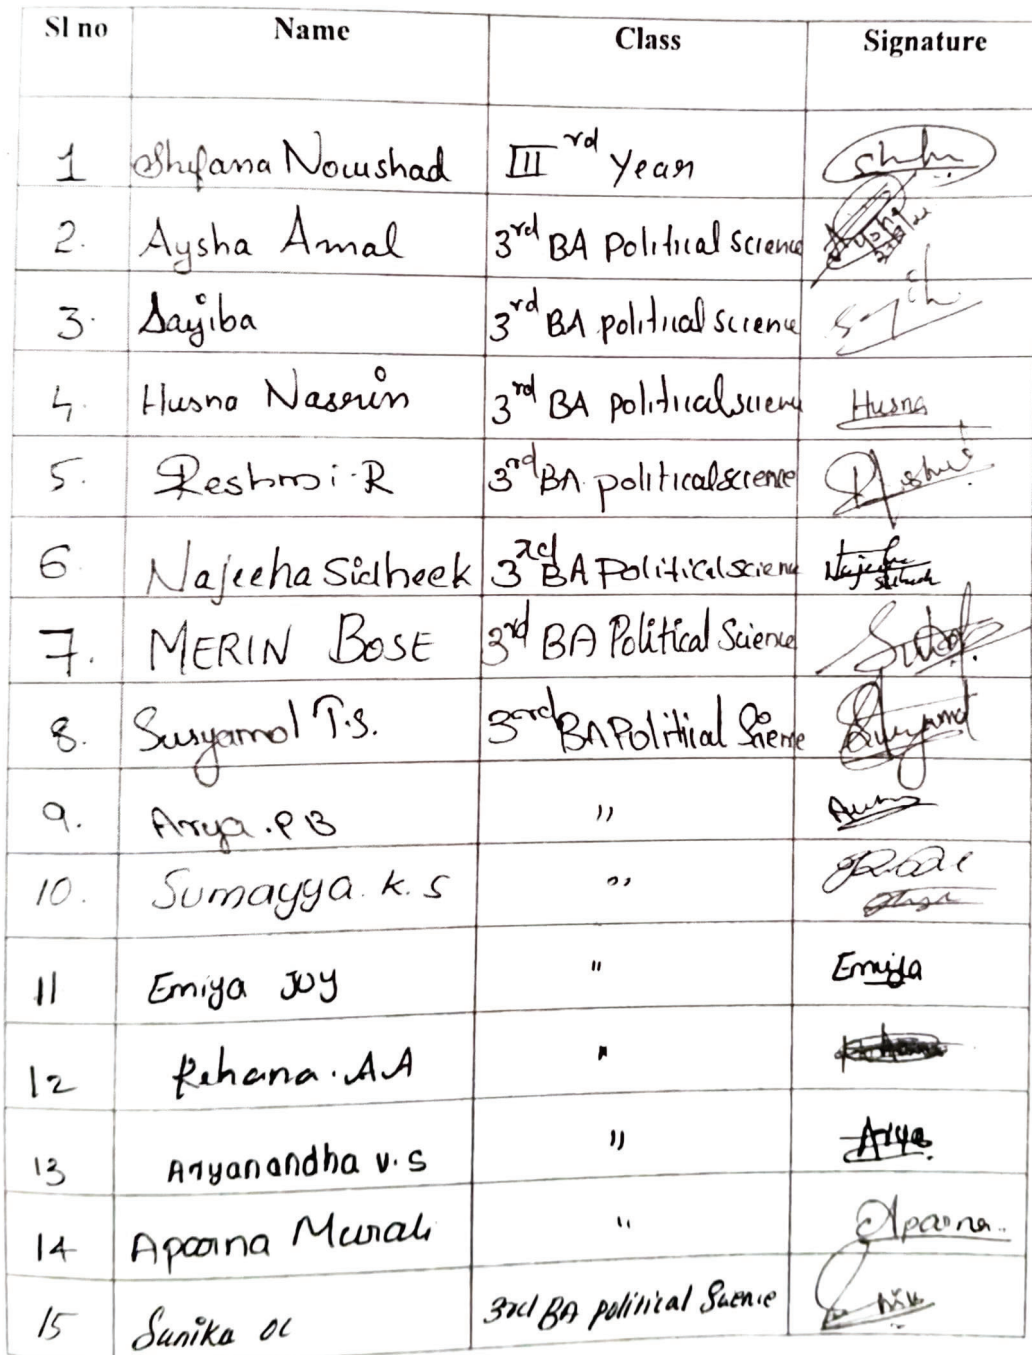 Sl no Name Class Signature
1 Shifana Nowshad III rd Year
2. Aysha Amal 3rd BA Political science
3. Sajiba 3rd BA political science
4. Husna Nasrin 3rd BA political science Husna
5. Reshmi.R 3rd BA political science
6 Najeeha Sidheek 3rd BA Political science
7. MERIN BOSE 3rd BA Political Science
8. Susyamol T.S. 3rd BA Political Science
9. Arya.P B ,,
10. Sumayya. K. S ,,
11 Emiya JOY " Emiya
12 Rehana. A A "
13 Aryanandha v. S " Arya
14 Aparna Murali " Aparna
15 Sunika 3rd BA political Science